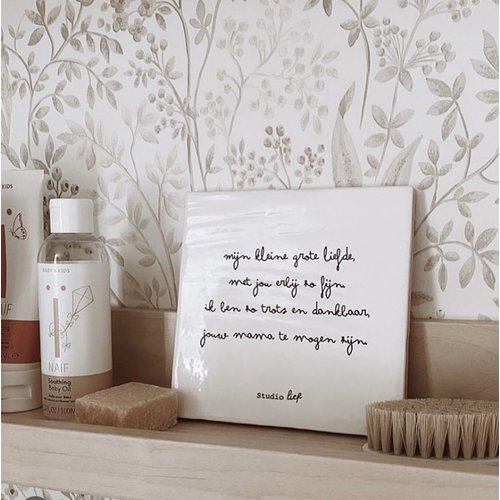 BABY & KIDS
NAÏF
Soothing
Baby Oil
100ML
mijn kleine grote liefde,
met jou erbij zo fijn.
ik ben zo trots en dankbaar,
jouw mama te mogen zijn.
Studio lief